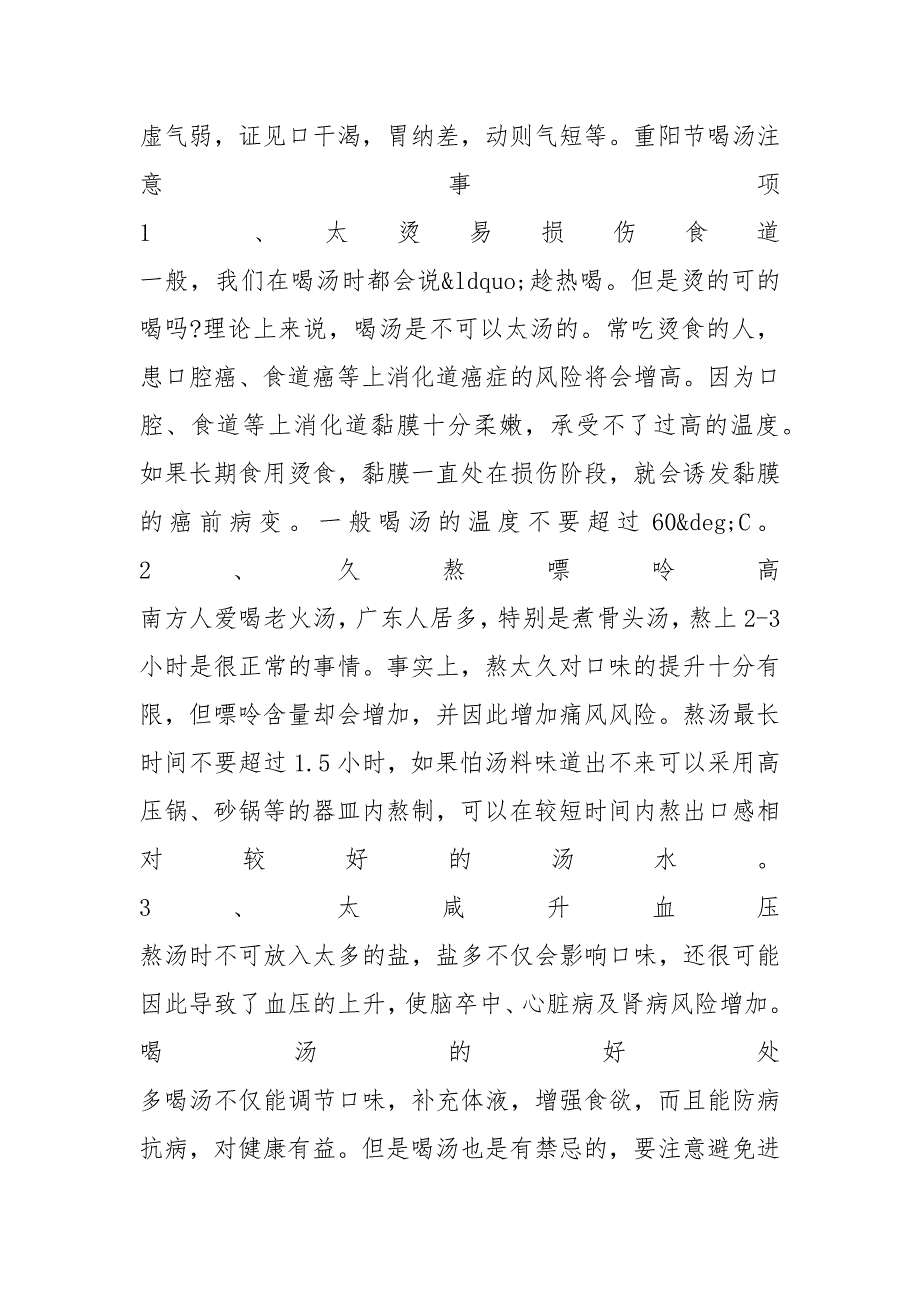 虚气弱，证见口干渴，胃纳差，动则气短等。重阳节喝汤注
意事项
1、太烫易损伤食道
一般，我们在喝汤时都会说&ldquo;趁热喝。但是烫的可的
喝吗?理论上来说，喝汤是不可以太汤的。常吃烫食的人，
患口腔癌、食道癌等上消化道癌症的风险将会增高。因为口
腔、食道等上消化道黏膜十分柔嫩，承受不了过高的温度。
如果长期食用烫食，黏膜一直处在损伤阶段，就会诱发黏膜
的癌前病变。一般喝汤的温度不要超过60&deg;C。
2、久熬嘌呤高
南方人爱喝老火汤，广东人居多，特别是煮骨头汤，熬上2-3
小时是很正常的事情。事实上，熬太久对口味的提升十分有
限，但嘌呤含量却会增加，并因此增加痛风风险。熬汤最长
时间不要超过1.5小时，如果怕汤料味道出不来可以采用高
压锅、砂锅等的器皿内熬制，可以在较短时间内熬出口感相
对较好的汤水。
3、太咸升血压
熬汤时不可放入太多的盐，盐多不仅会影响口味，还很可能
因此导致了血压的上升，使脑卒中、心脏病及肾病风险增加。
喝汤的好处
多喝汤不仅能调节口味，补充体液，增强食欲，而且能防病
抗病，对健康有益。但是喝汤也是有禁忌的，要注意避免进